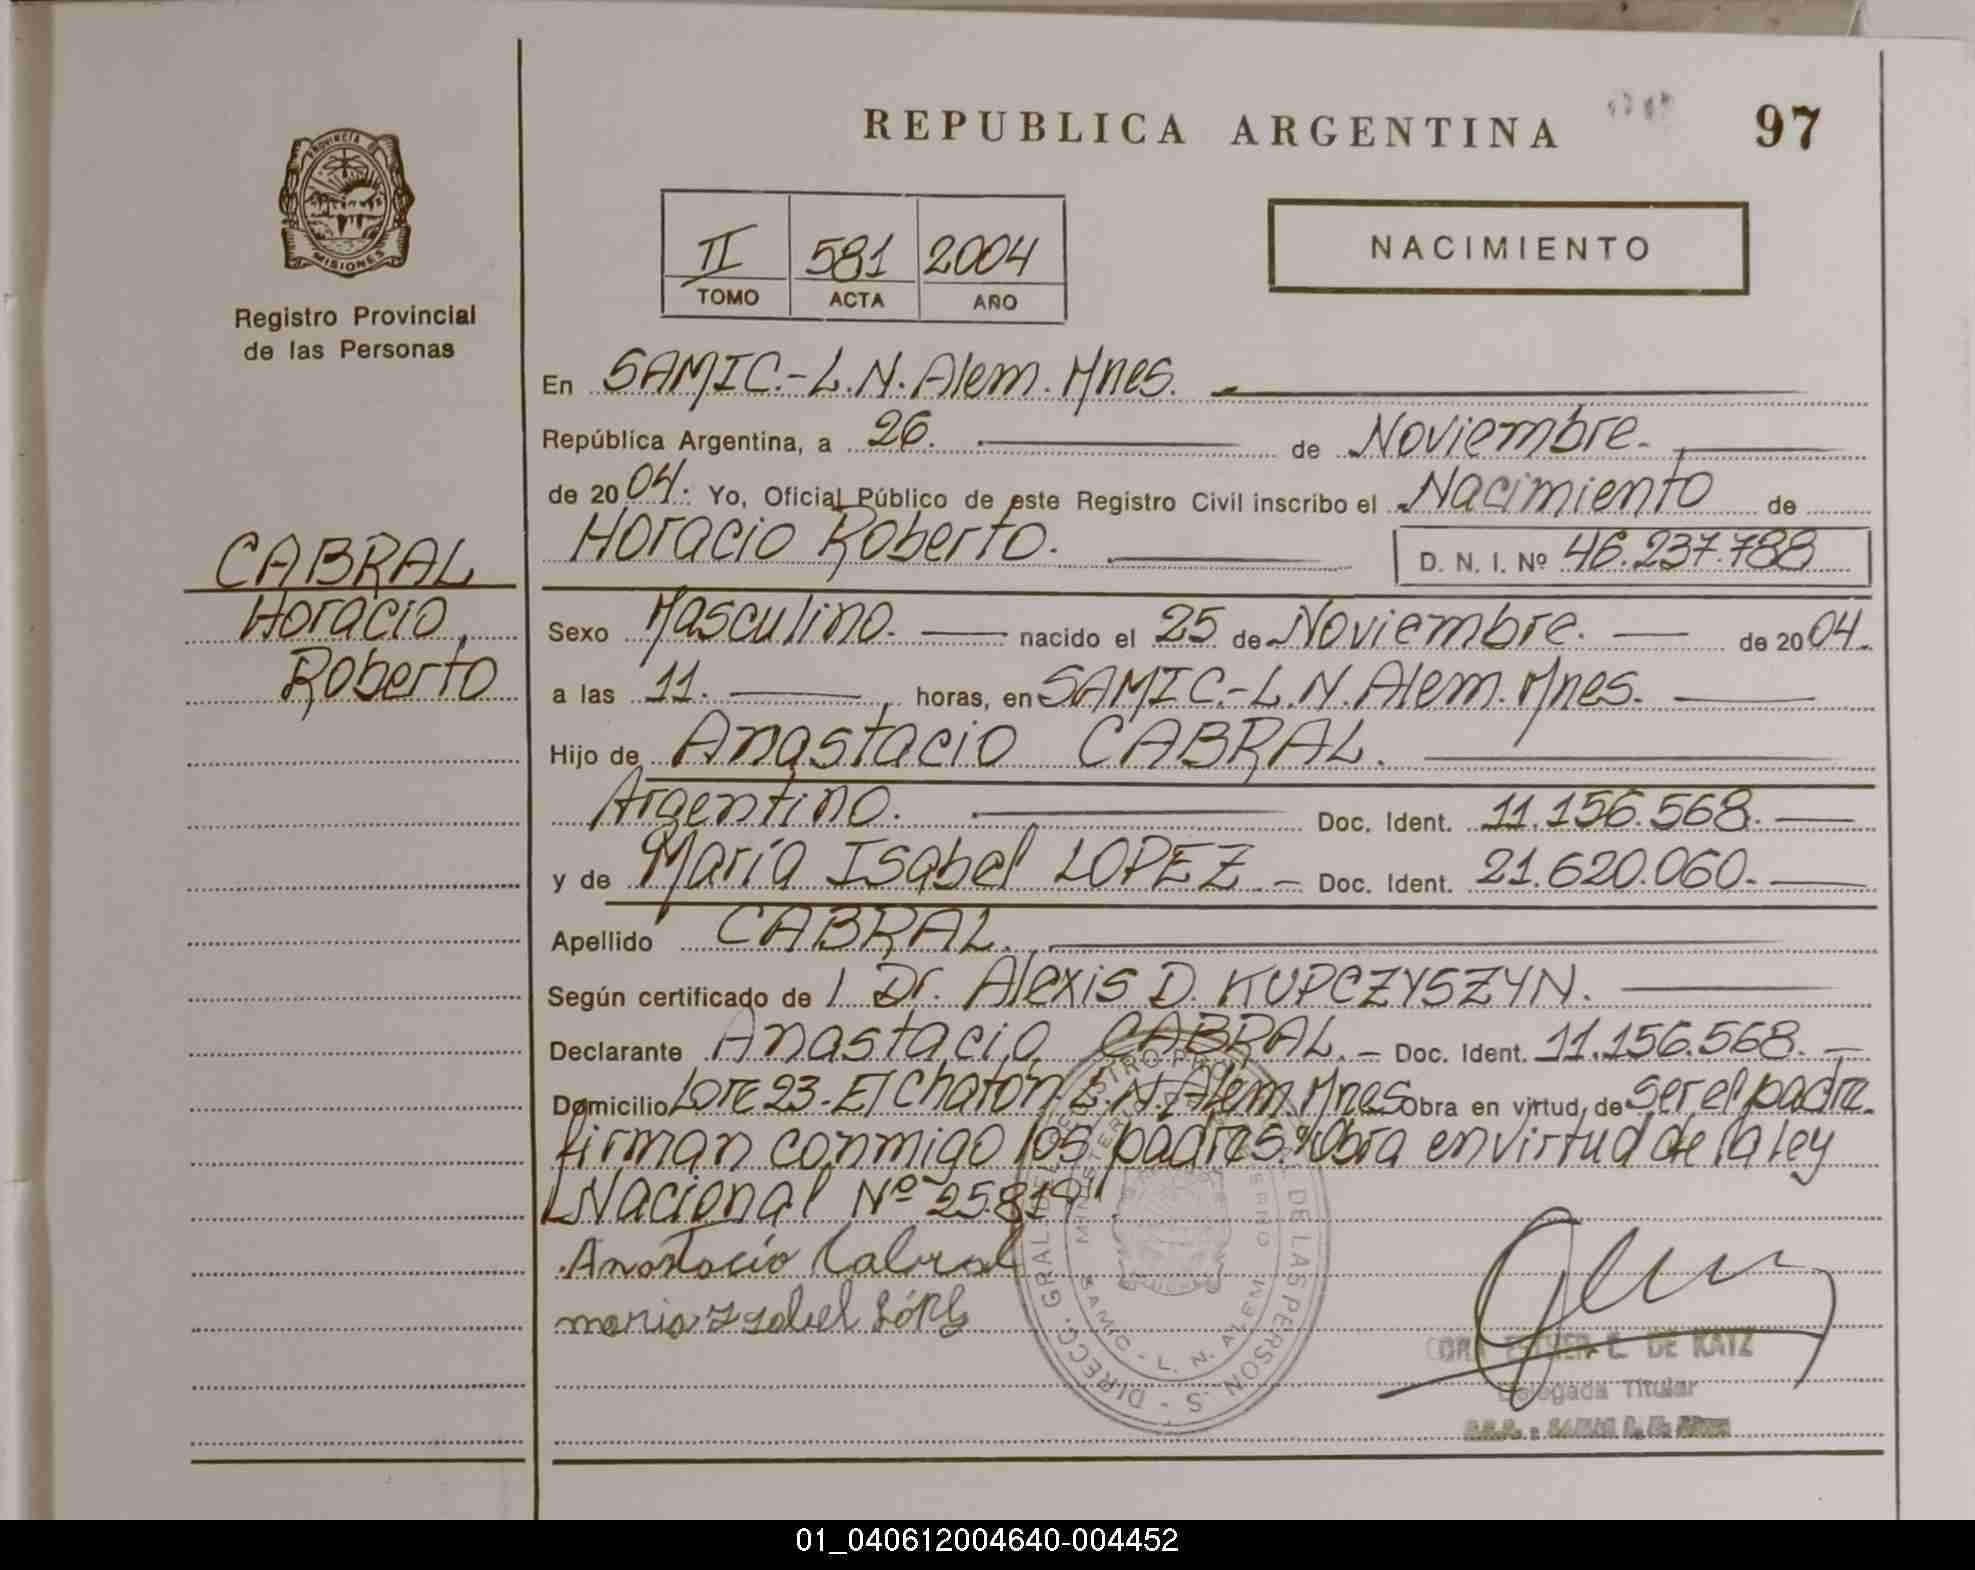 REPUBLICA ARGENTINA
97
PROVINCIA DE
MISIONES
Registro Provincial
de las Personas
II 581 2004
TOMO ACTA AÑO
NACIMIENTO
En SAMIC.-L.N.Alem.Mnes.
República Argentina, a 26. de Noviembre.
de 2004. Yo, Oficial Público de este Registro Civil inscribo el Nacimiento de
Horacio Roberto. D. N. I. Nº 46.237.788
CABRAL
Horacio
Roberto
Sexo Masculino. nacido el 25 de Noviembre. de 2004.
a las 11. horas, en SAMIC.-L.N.Alem.Mnes.
Hijo de Anastacio CABRAL.
Argentino. Doc. Ident. 11.156.568.
y de María Isabel LOPEZ - Doc. Ident. 21.620.060.
Apellido CABRAL.
Según certificado de l Dr. Alexis D. KUPCZYSZYN.
Declarante Anastacio CABRAL. - Doc. Ident. 11.156.568.
Domicilio Lote 23-El Chatón.L.N.Alem.Mnes Obra en virtud de ser el padre.
firman conmigo los padres. "Obra en virtud de la ley
Nacional Nº 25.819"
Anastacio Cabral
maria Isabel López
DIRECC. GRAL. DEL REGISTRO DE LAS PERSONAS
SAMIC - L. N. ALEM
ESTHER E. DE KATZ
Delegada Titular
01_040612004640-004452